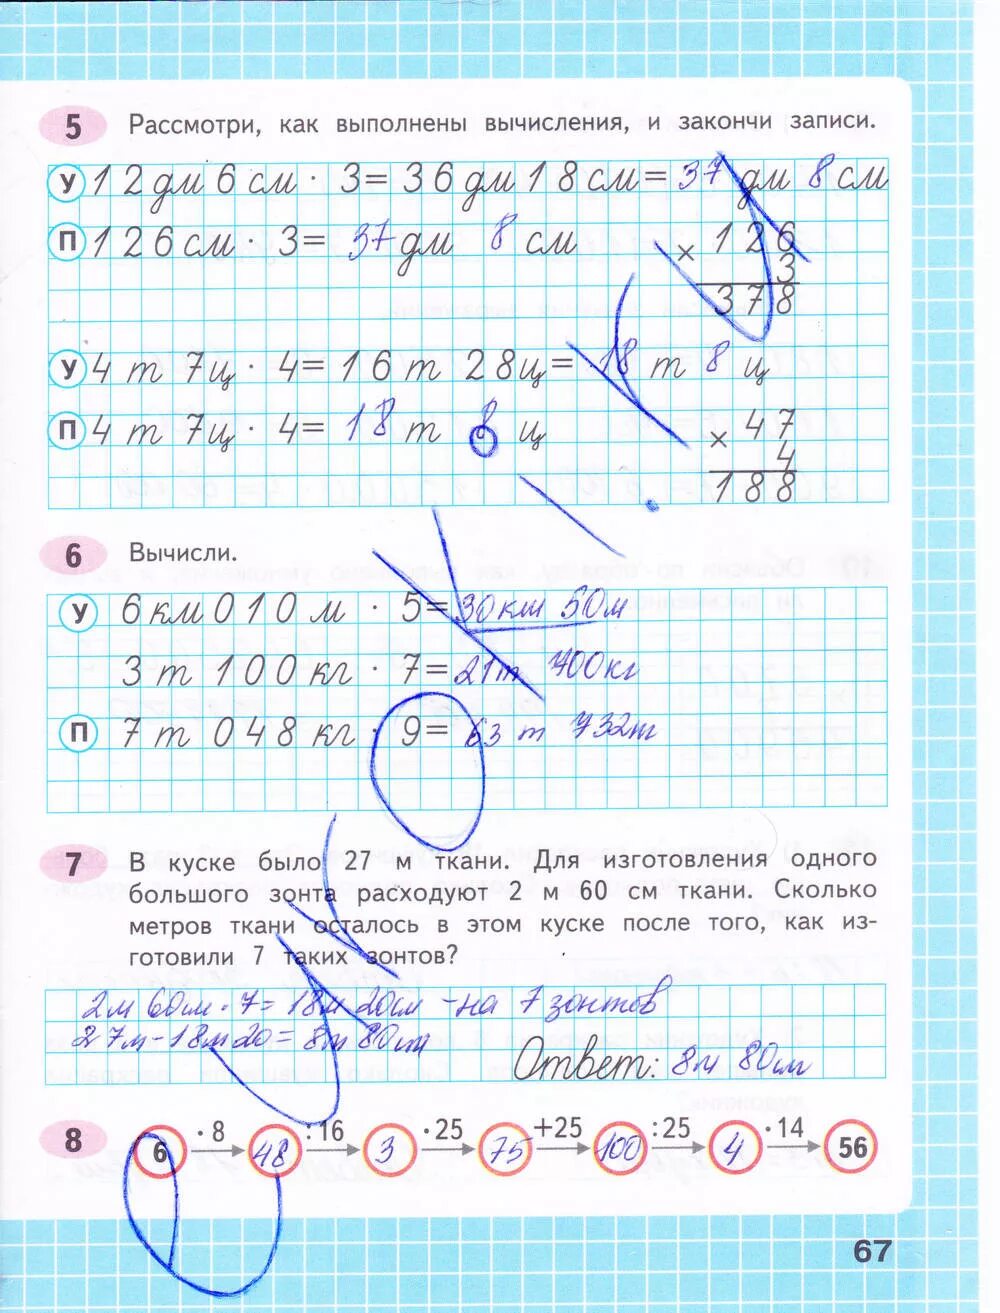 5 Рассмотри, как выполнены вычисления, и закончи записи.
У 12 дм 6 см · 3 = 36 дм 18 см = 37 дм 8 см
П 126 см · 3 = 37 дм 8 см
× 126
3
378
У 4 т 7 ц · 4 = 16 т 28 ц = 18 т 8 ц
П 4 т 7 ц · 4 = 18 т 8 ц
× 47
4
188
6 Вычисли.
У 6 км 010 м · 5 = 30 км 50 м
3 т 100 кг · 7 = 21 т 700 кг
П 7 т 048 кг · 9 = 63 т 432 т
7 В куске было 27 м ткани. Для изготовления одного
большого зонта расходуют 2 м 60 см ткани. Сколько
метров ткани осталось в этом куске после того, как из-
готовили 7 таких зонтов?
2м 60м · 7 = 18м 20см - на 7 зонтов
27м - 18м 20 = 8м 80см
Ответ: 8м 80см
8 6 · 8 48 : 16 3 · 25 75 + 25 100 : 25 4 · 14 56
67